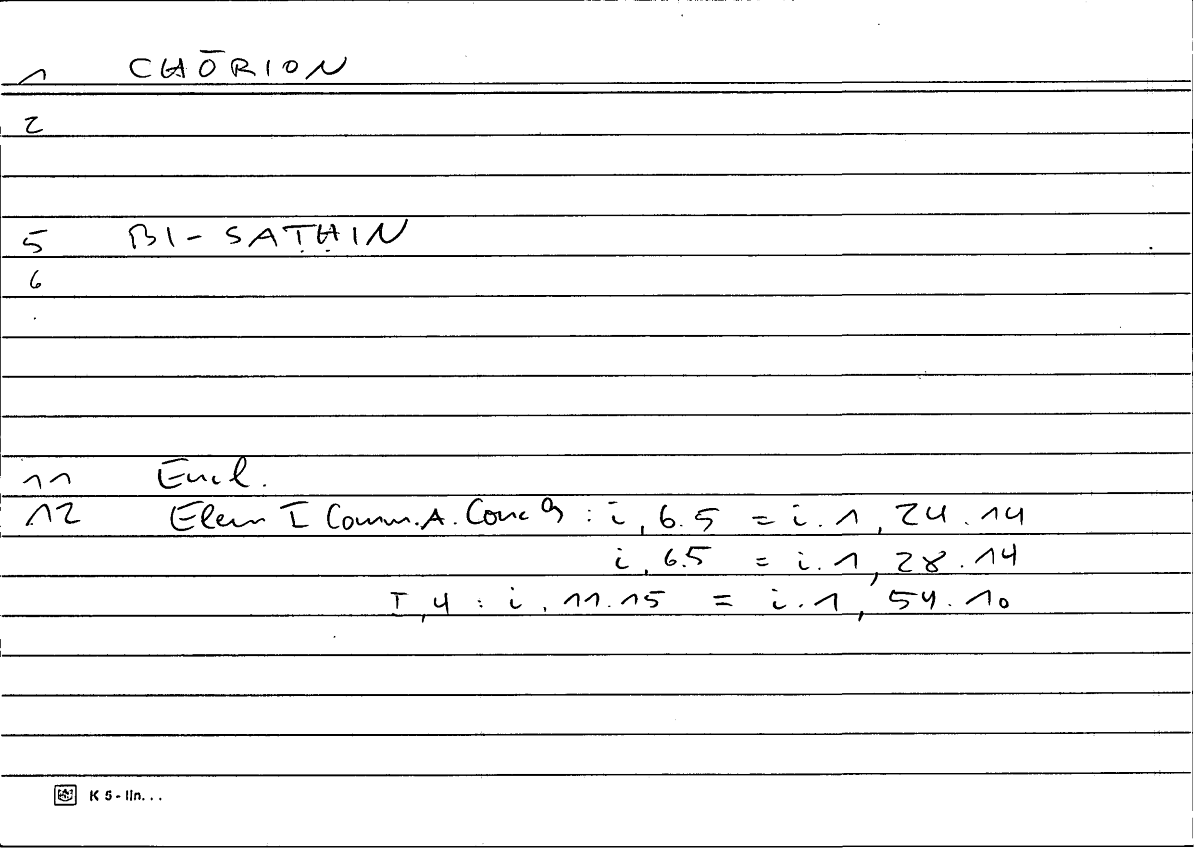 1 CHŌRION
2
5 BI-SAṬḤIN
6
11 Eucl.
12 Elem I Comm.A. Conc 9 : i, 6.5 = i.1, 24.14
i, 6.5 = i.1, 28.14
I, 4 : i, 11.15 = i.1, 54.10
K 5 - lin...